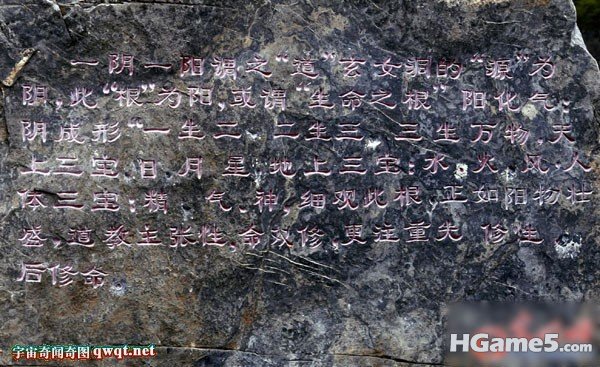 一阴一阳谓之“道”玄女洞的“源”为
阴,此“根”为阳,或谓“生命之根”阳化气,
阴成形“一生二、二生三、三生万物,天
上三宝,日、月、星”地上三宝:水、火、风、人
体三宝:精、气、神,细观此根,正如阳物壮
盛,道教主张性,命双修,更注重先 修性,
后修命
宇宙奇闻奇图 qwqt.net
HGame5.com